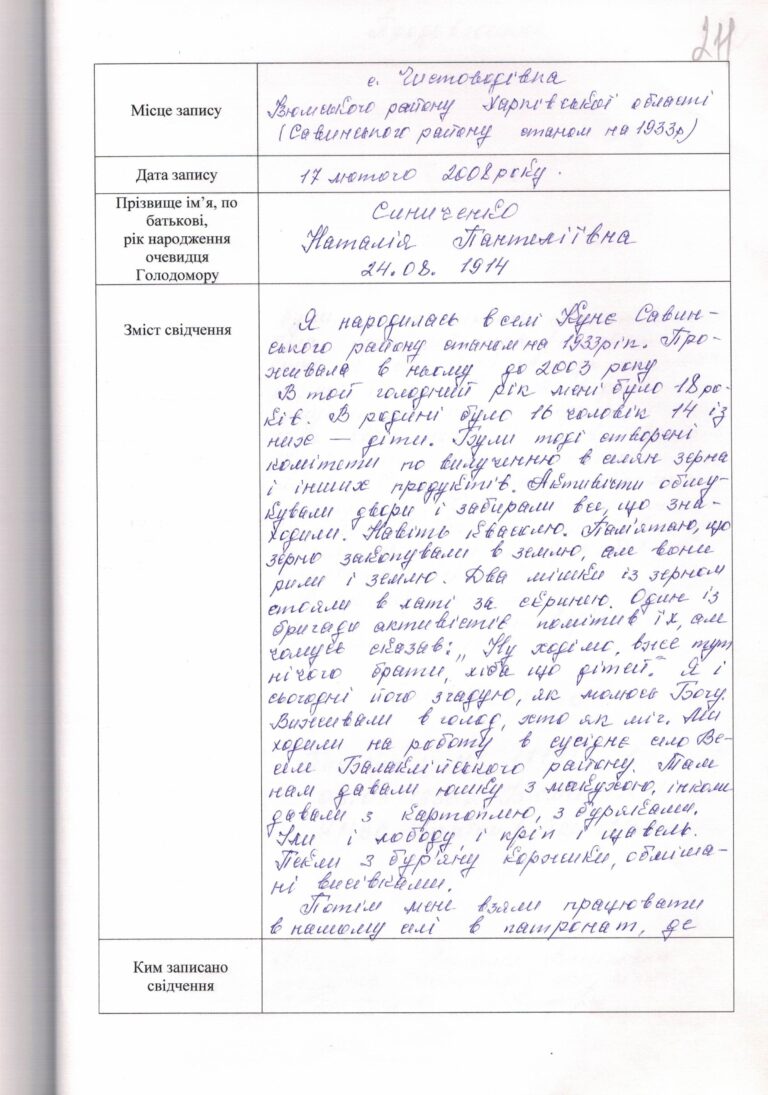 211
Місце запису
с. Чистоводівка
Ізюмського району Харківської області
(Савинського району станом на 1933р)
Дата запису
17 лютого 2008 року.
Прізвище ім’я, по
батькові,
рік народження
очевидця
Голодомору
Синиченко
Наталія Пантеліївна
24.08. 1914
Зміст свідчення
Я народилась в селі Кунє Савин-
ського району станом на 1933 рік. Про-
живала в ньому до 2003 року
В той голодний рік мені було 18 ро-
ків. В родині було 16 чоловік 14 із
них — діти. Були тоді створені
комітети по вилученню в селян зерна
і інших продуктів. Активісти обшу-
кували двори і забирали все, що зна-
ходили. Навіть квасолю. Пам'ятаю, що
зерно закопували в землю, але вони
рили і землю. Два мішки із зерном
стояли в хаті за скринею. Один із
бригади активістів помітив їх, але
чомусь сказав: „Ну ходімо, вже тут
нічого брати, хіба що дітей." Я і
сьогодні його згадую, як молюсь Богу.
Виживали в голод, хто як міг. Ми
ходили на роботу в сусіднє село Ве-
селе Балаклійського району. Там
нам давали юшку з макухою, інколи
давали з картоплею, з буряками.
Їли і лободу, і кріп і щавель.
Пекли з бур'яну коржики, обліпле-
ні висівками.
Потім мене взяли працювати
в нашому селі в патронат, де
Ким записано
свідчення